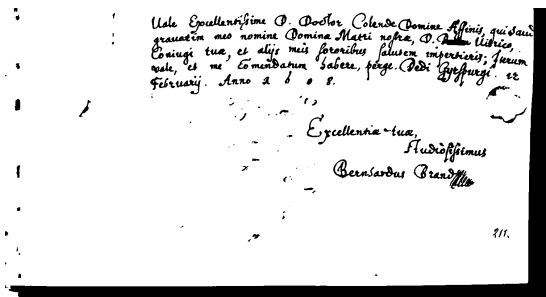 Vale Excellentissime D. Doctor Colende Domine Affinis, qui haud
gravatim meo nomine Domina Matri nostræ, D. Uldrico,
Coniugi tuæ, et alijs meis sororibus salutem impertieris; Iterum
vale, et me Comendatum habere, perge. Dedi
Februarij. Anno 1608.
Excellentiæ tuæ,
studiosissimus
Bernhardus Brand
211.